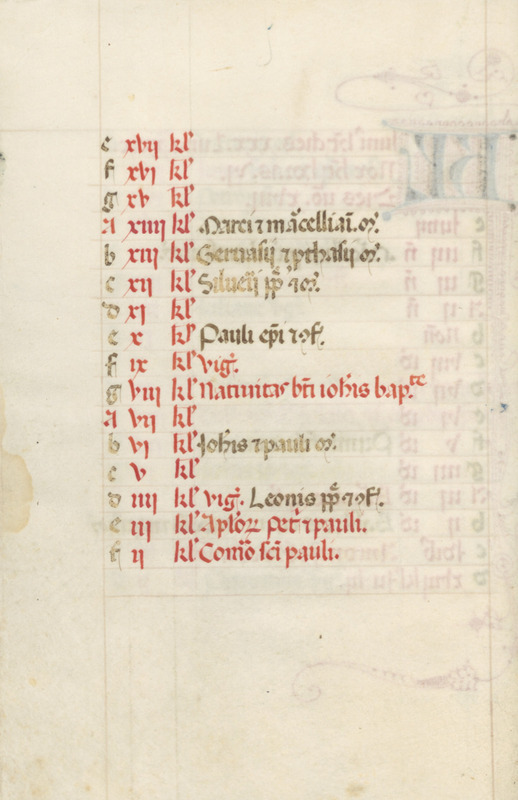 e xvii kl'
f xvi kl'
g xv kl'
A xiiii kl' Marci ⁊ m̃celliaī. mr̃.
b xiii kl' Geruasij ⁊ ꝓthasij mr̃.
c xii kl' Siluerij pp̃ ⁊ mr̃.
d xi kl'
e x kl' Pauli ep̃i ⁊ ɔf̃.
f ix kl' vig̃.
g viii kl' Natiuitas bt̃i ioh̃is bap.te
A vii kl'
b vi kl' Ioh̃is ⁊ pauli mr̃.
c v kl'
d iiii kl' vig̃. Leonis pp̃ ⁊ ɔf̃.
e iii kl' Ap̃loꝝ pet' ⁊ pauli.
f ii kl' Com̃o sc̃i pauli.